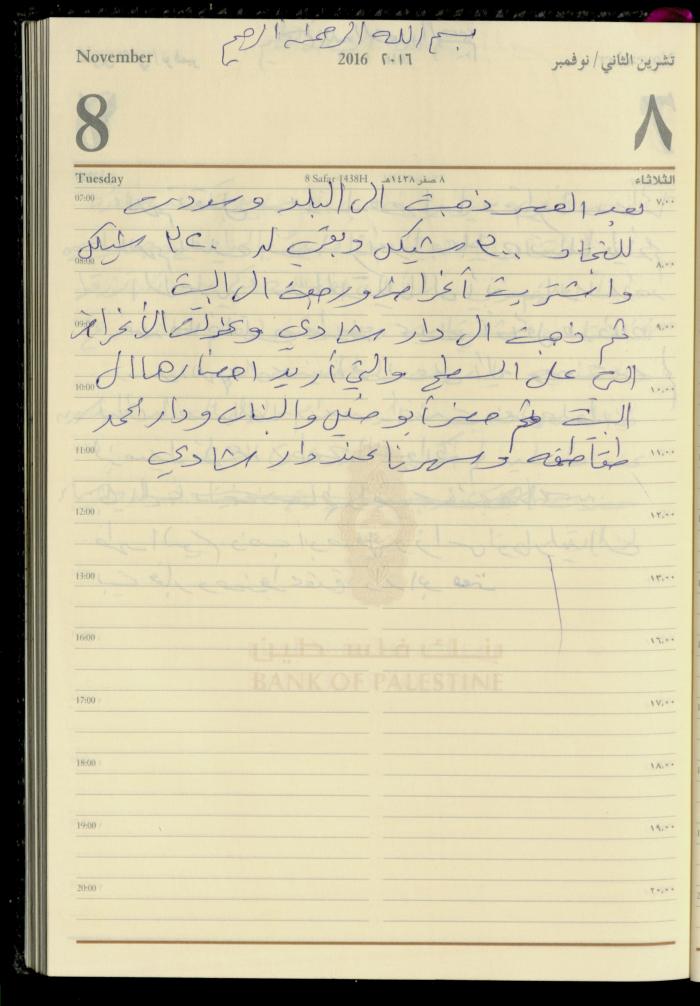 بسم الله الرحمن الرحيم
November 2016 ٢٠١٦ تشرين الثاني / نوفمبر
8 ٨
Tuesday 8 Safar 1438H ٨ صفر ١٤٣٨هـ الثلاثاء
07:00 بعد العصر ذهبت الى البلد وسددت ٧,٠٠
٣٠٠ شيكل وبقي له ٣٢٠٠ شيكل
08:00 ٨,٠٠
واشتريت أغراض ورجعت الى البيت
09:00 ثم ذهبت الى دار شادي وعزلت الأغراض ٩,٠٠
التي على السطح والتي أريد احضارها الى
10:00 ١٠,٠٠
البيت ثم حضر أبو والبنات ودار
11:00 وسهرنا عند دار شادي ١١,٠٠
12:00 ١٢,٠٠
13:00 ١٣,٠٠
16:00 ١٦,٠٠
بنك فلسطين
BANK OF PALESTINE
17:00 ١٧,٠٠
18:00 ١٨,٠٠
19:00 ١٩,٠٠
20:00 ٢٠,٠٠